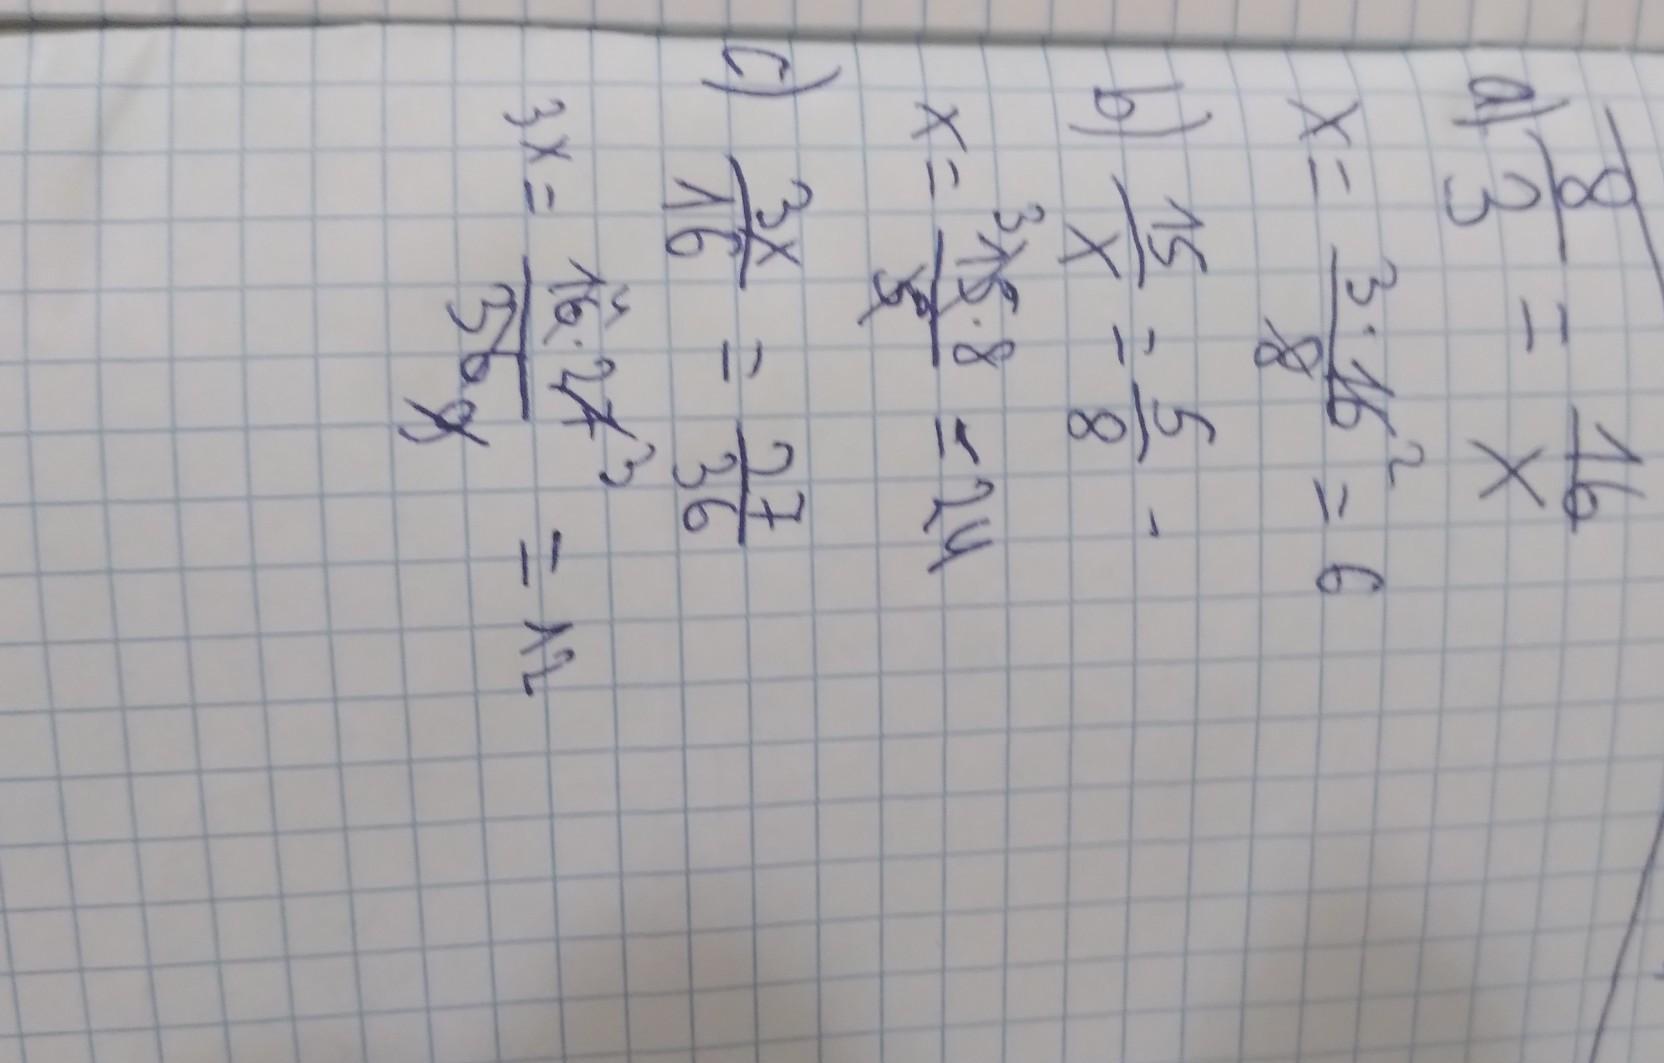 a) 8/3 = 16/x
x = 3·16²/8 = 6
b) 15/x = 5/8 -
x = ³15·8/5 = 24
c) 3x/16 = 27/36
3x = 16⁴·27³/36 9 = 12